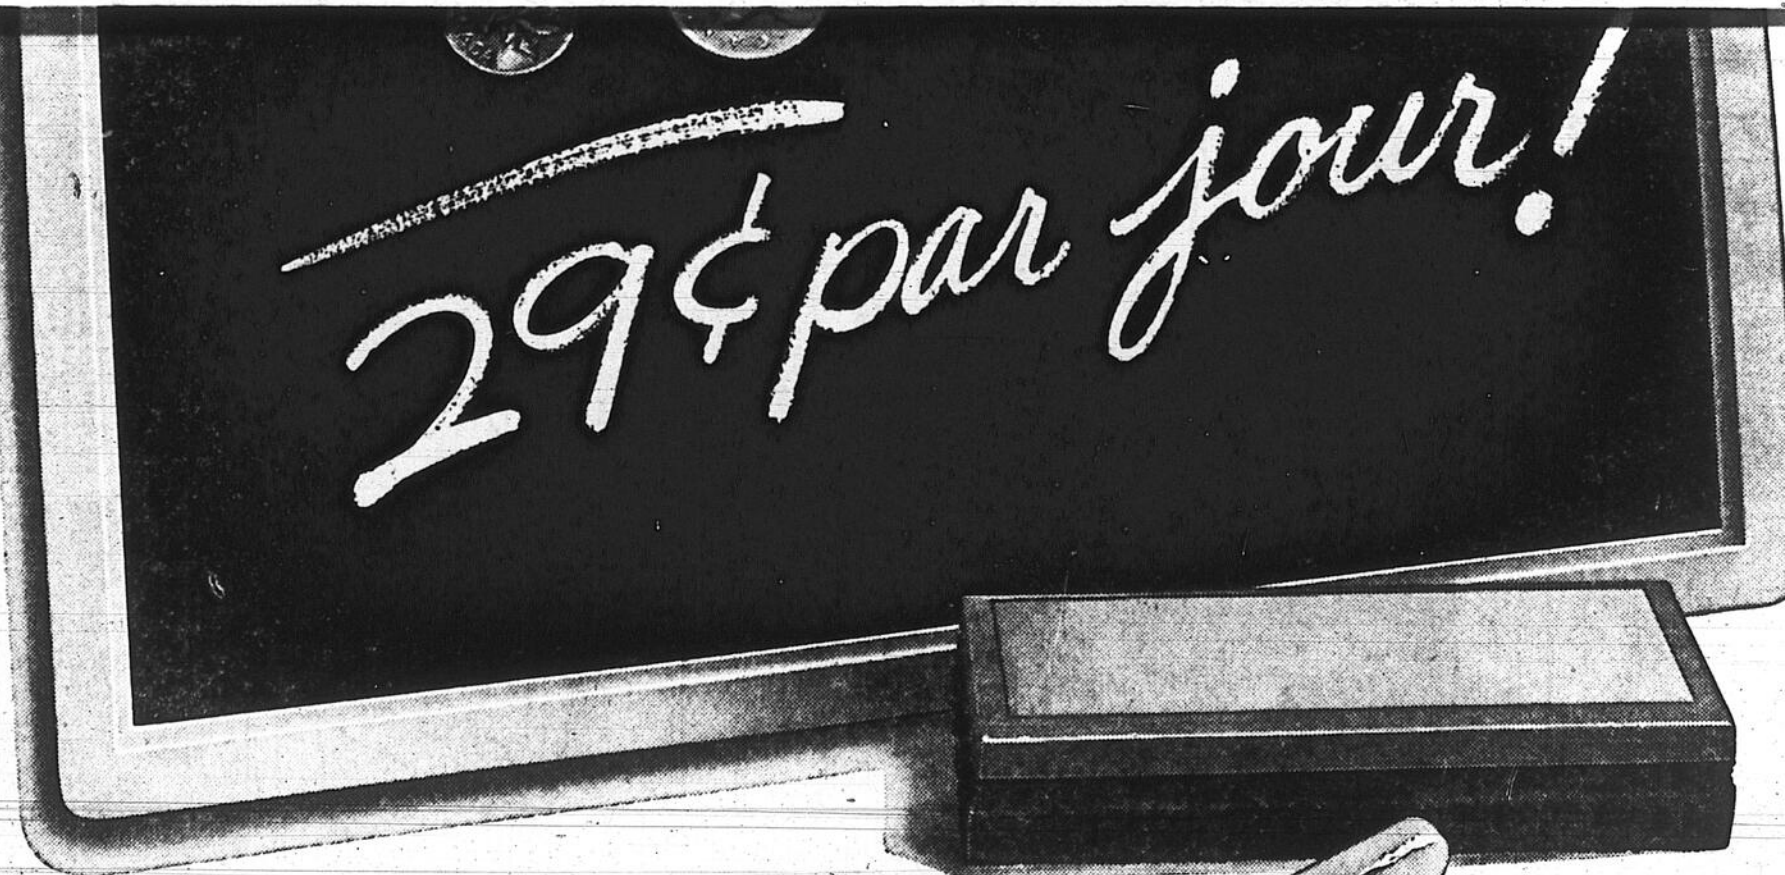 29¢ par jour!